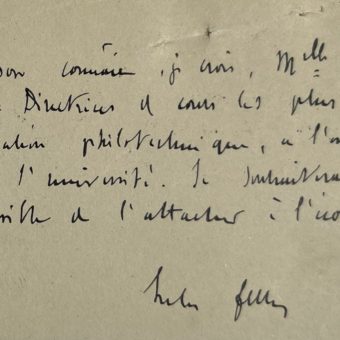 son connaît, je crois, Mlle
Directrice d cours les plus
ation philotechnique, à l'
l'université. Je souhaitera
sible de l'attacher à l'éco
Jules Ferry